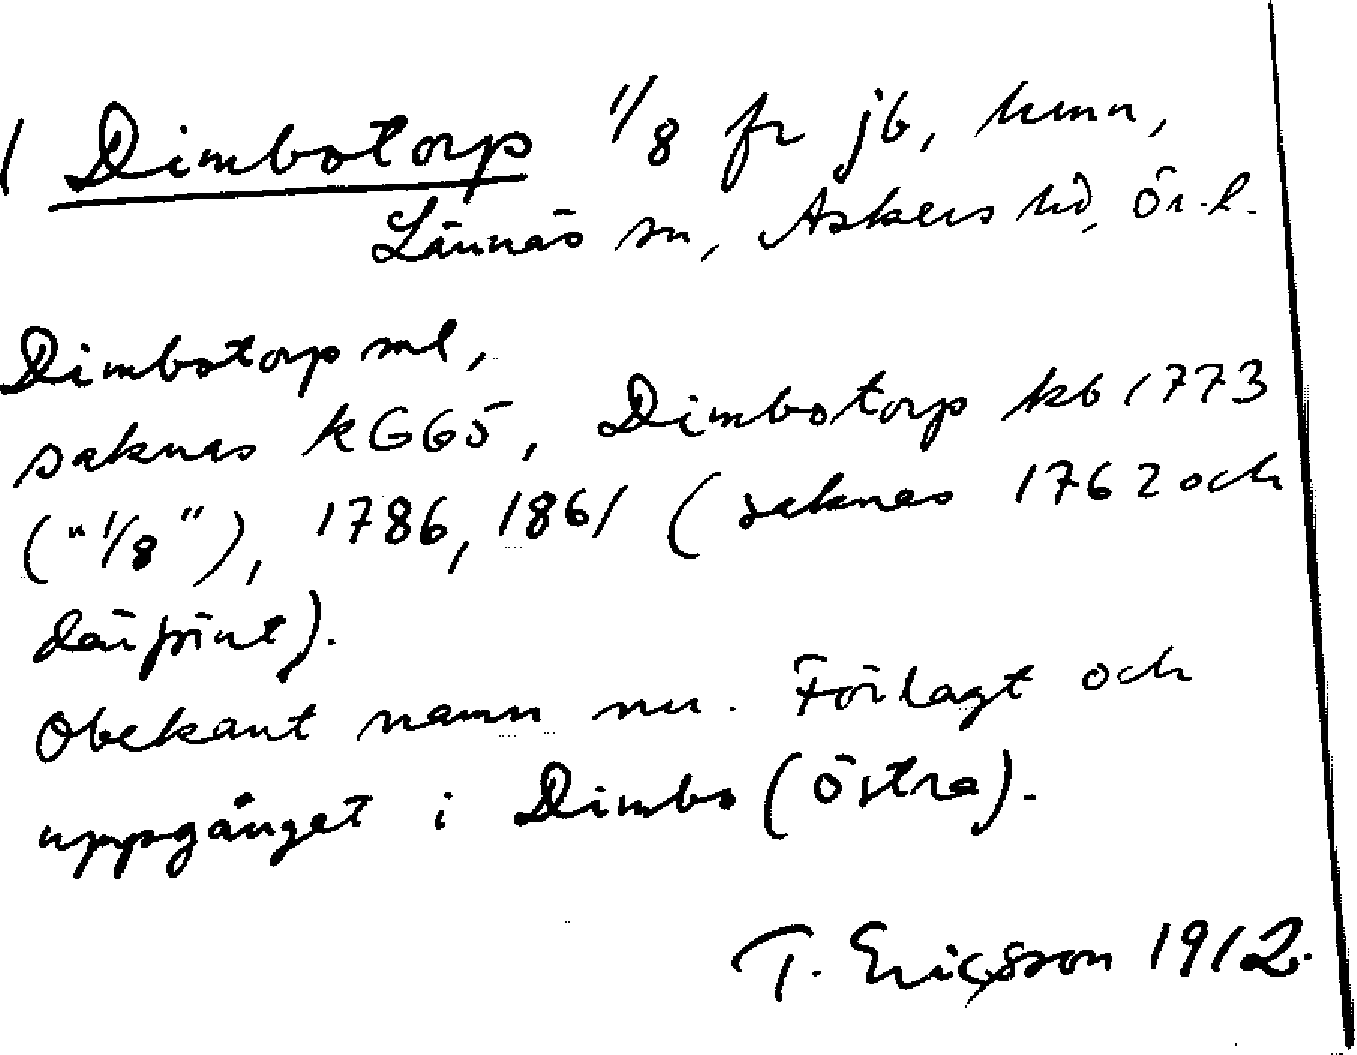 / Dimbotorp 1/8 fr jb, hmn,
Lännäs sn, Askers hd, Ör. l.
Dimbotorp sml,
saknas k GG5, Dimbotorp kb 1773
("1/8"), 1786, 1861 (saknas 1762 och
därförut).
Obekant namn nu. Förlagt och
uppgånget i Dimbo (Östra).
T. Ericsson 1912.